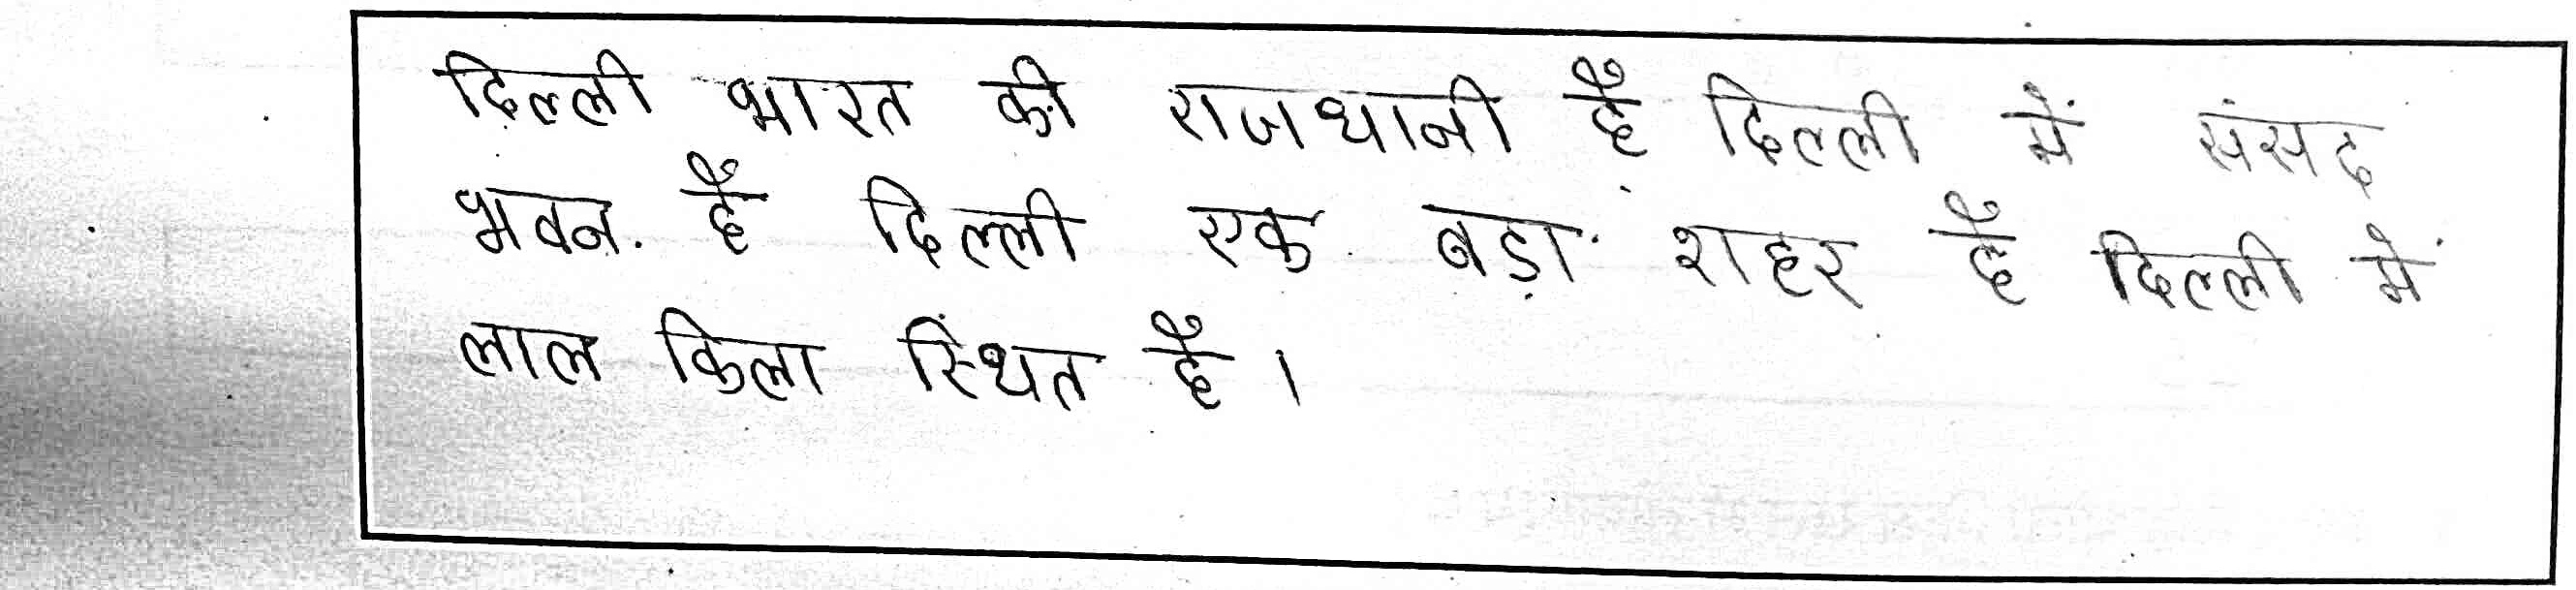 दिल्ली भारत की राजधानी है दिल्ली में संसद
भवन है दिल्ली एक बड़ा शहर है दिल्ली में
लाल किला स्थित है।